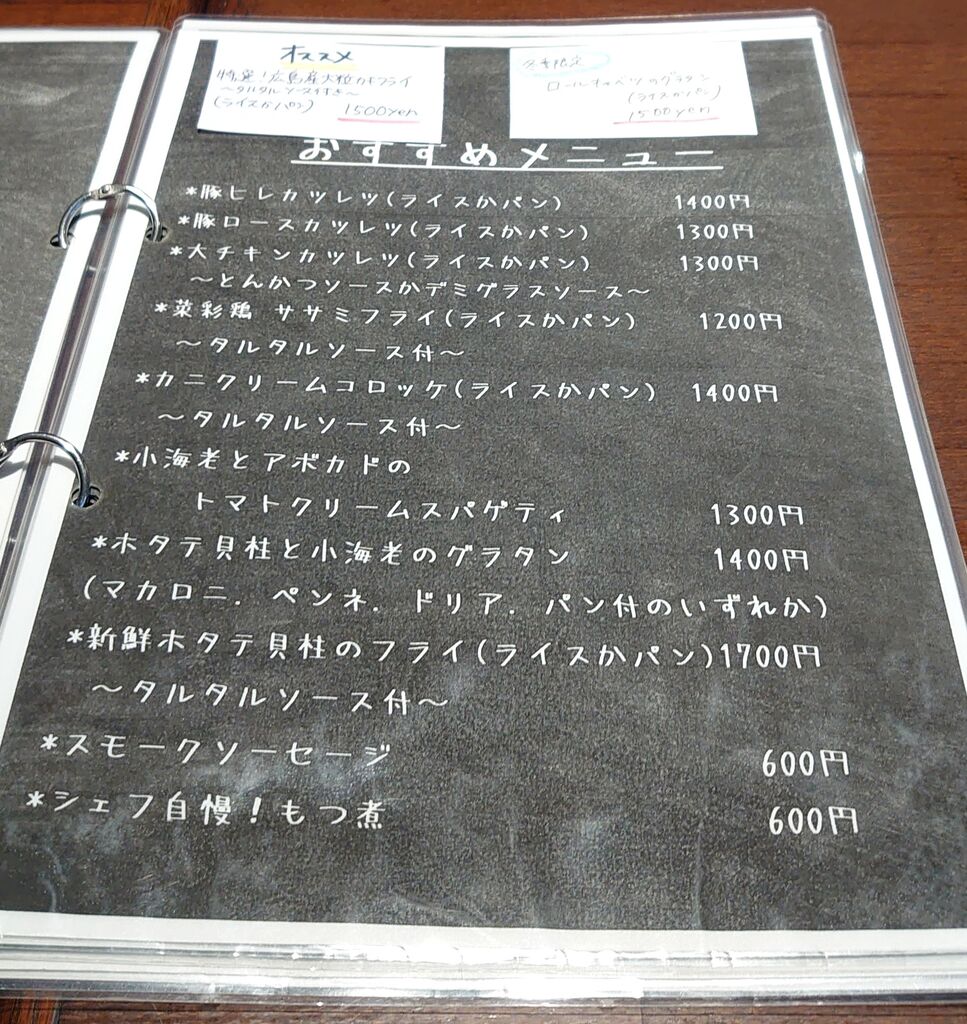 オススメ
特選!広島産大粒カキフライ
〜タルタルソース付き〜
(ライスかパン) 1500yen
冬季限定
ロールキャベツのグラタン
(ライスかパン)
1500yen
おすすめメニュー
*豚ヒレカツレツ(ライスかパン) 1400円
*豚ロースカツレツ(ライスかパン) 1300円
*大チキンカツレツ(ライスかパン) 1300円
〜とんかつソースかデミグラスソース〜
*菜彩鶏 ササミフライ(ライスかパン) 1200円
〜タルタルソース付〜
*カニクリームコロッケ(ライスかパン) 1400円
〜タルタルソース付〜
*小海老とアボカドの
トマトクリームスパゲティ 1300円
*ホタテ貝柱と小海老のグラタン 1400円
(マカロニ. ペンネ. ドリア. パン付のいずれか)
*新鮮ホタテ貝柱のフライ(ライスかパン)1700円
〜タルタルソース付〜
*スモークソーセージ 600円
*シェフ自慢!もつ煮 600円